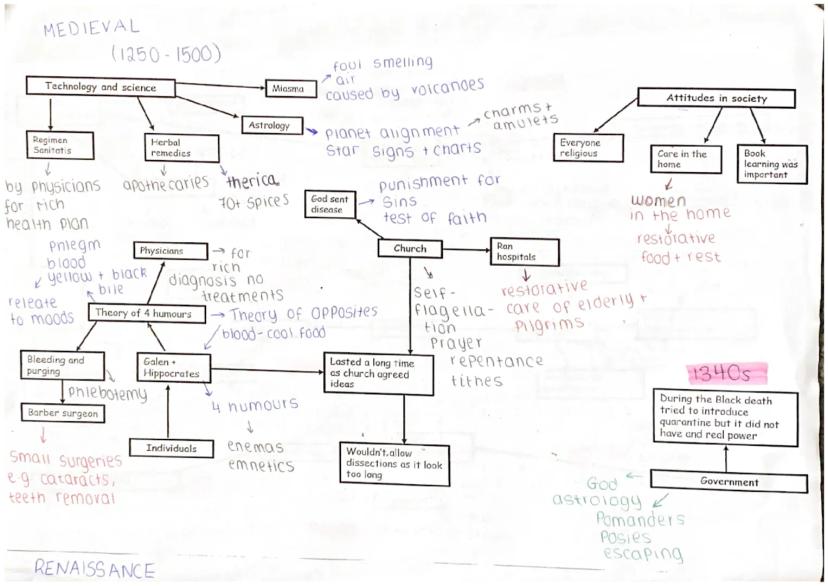 MEDIEVAL
(1250-1500)
Technology and science
Miasma
foul smelling
air
caused by volcanoes
Astrology
planet alignment
star signs + charts
charms +
amulets
Regimen
Sanitatis
by physicians
for rich
health plan
Herbal
remedies
apothecaries
therica
70+ spices
Attitudes in society
Everyone
religious
Care in the
home
women
in the home
restorative
food + rest
Book
learning was
important
God sent
disease
punishment for
sins
test of faith
Church
Ran
hospitals
restorative
care of elderly +
pilgrims
Self-
flagella-
tion
prayer
repentance
tithes
Physicians
for
rich
diagnosis no
treatments
phlegm
blood
yellow + black
bile
releate
to moods
Theory of 4 humours
Theory of OPPosites
blood-cool food
Bleeding and
purging
phlebotemy
Barber surgeon
small surgeries
e.g cataracts,
teeth removal
Galen +
Hippocrates
4 humours
enemas
emnetics
Individuals
Lasted a long time
as church agreed
ideas
Wouldn't,allow
dissections as it look
too long
1340s
During the Black death
tried to introduce
quarantine but it did not
have and real power
Government
God
astrology
Pomanders
Posies
escaping
RENAISSANCE